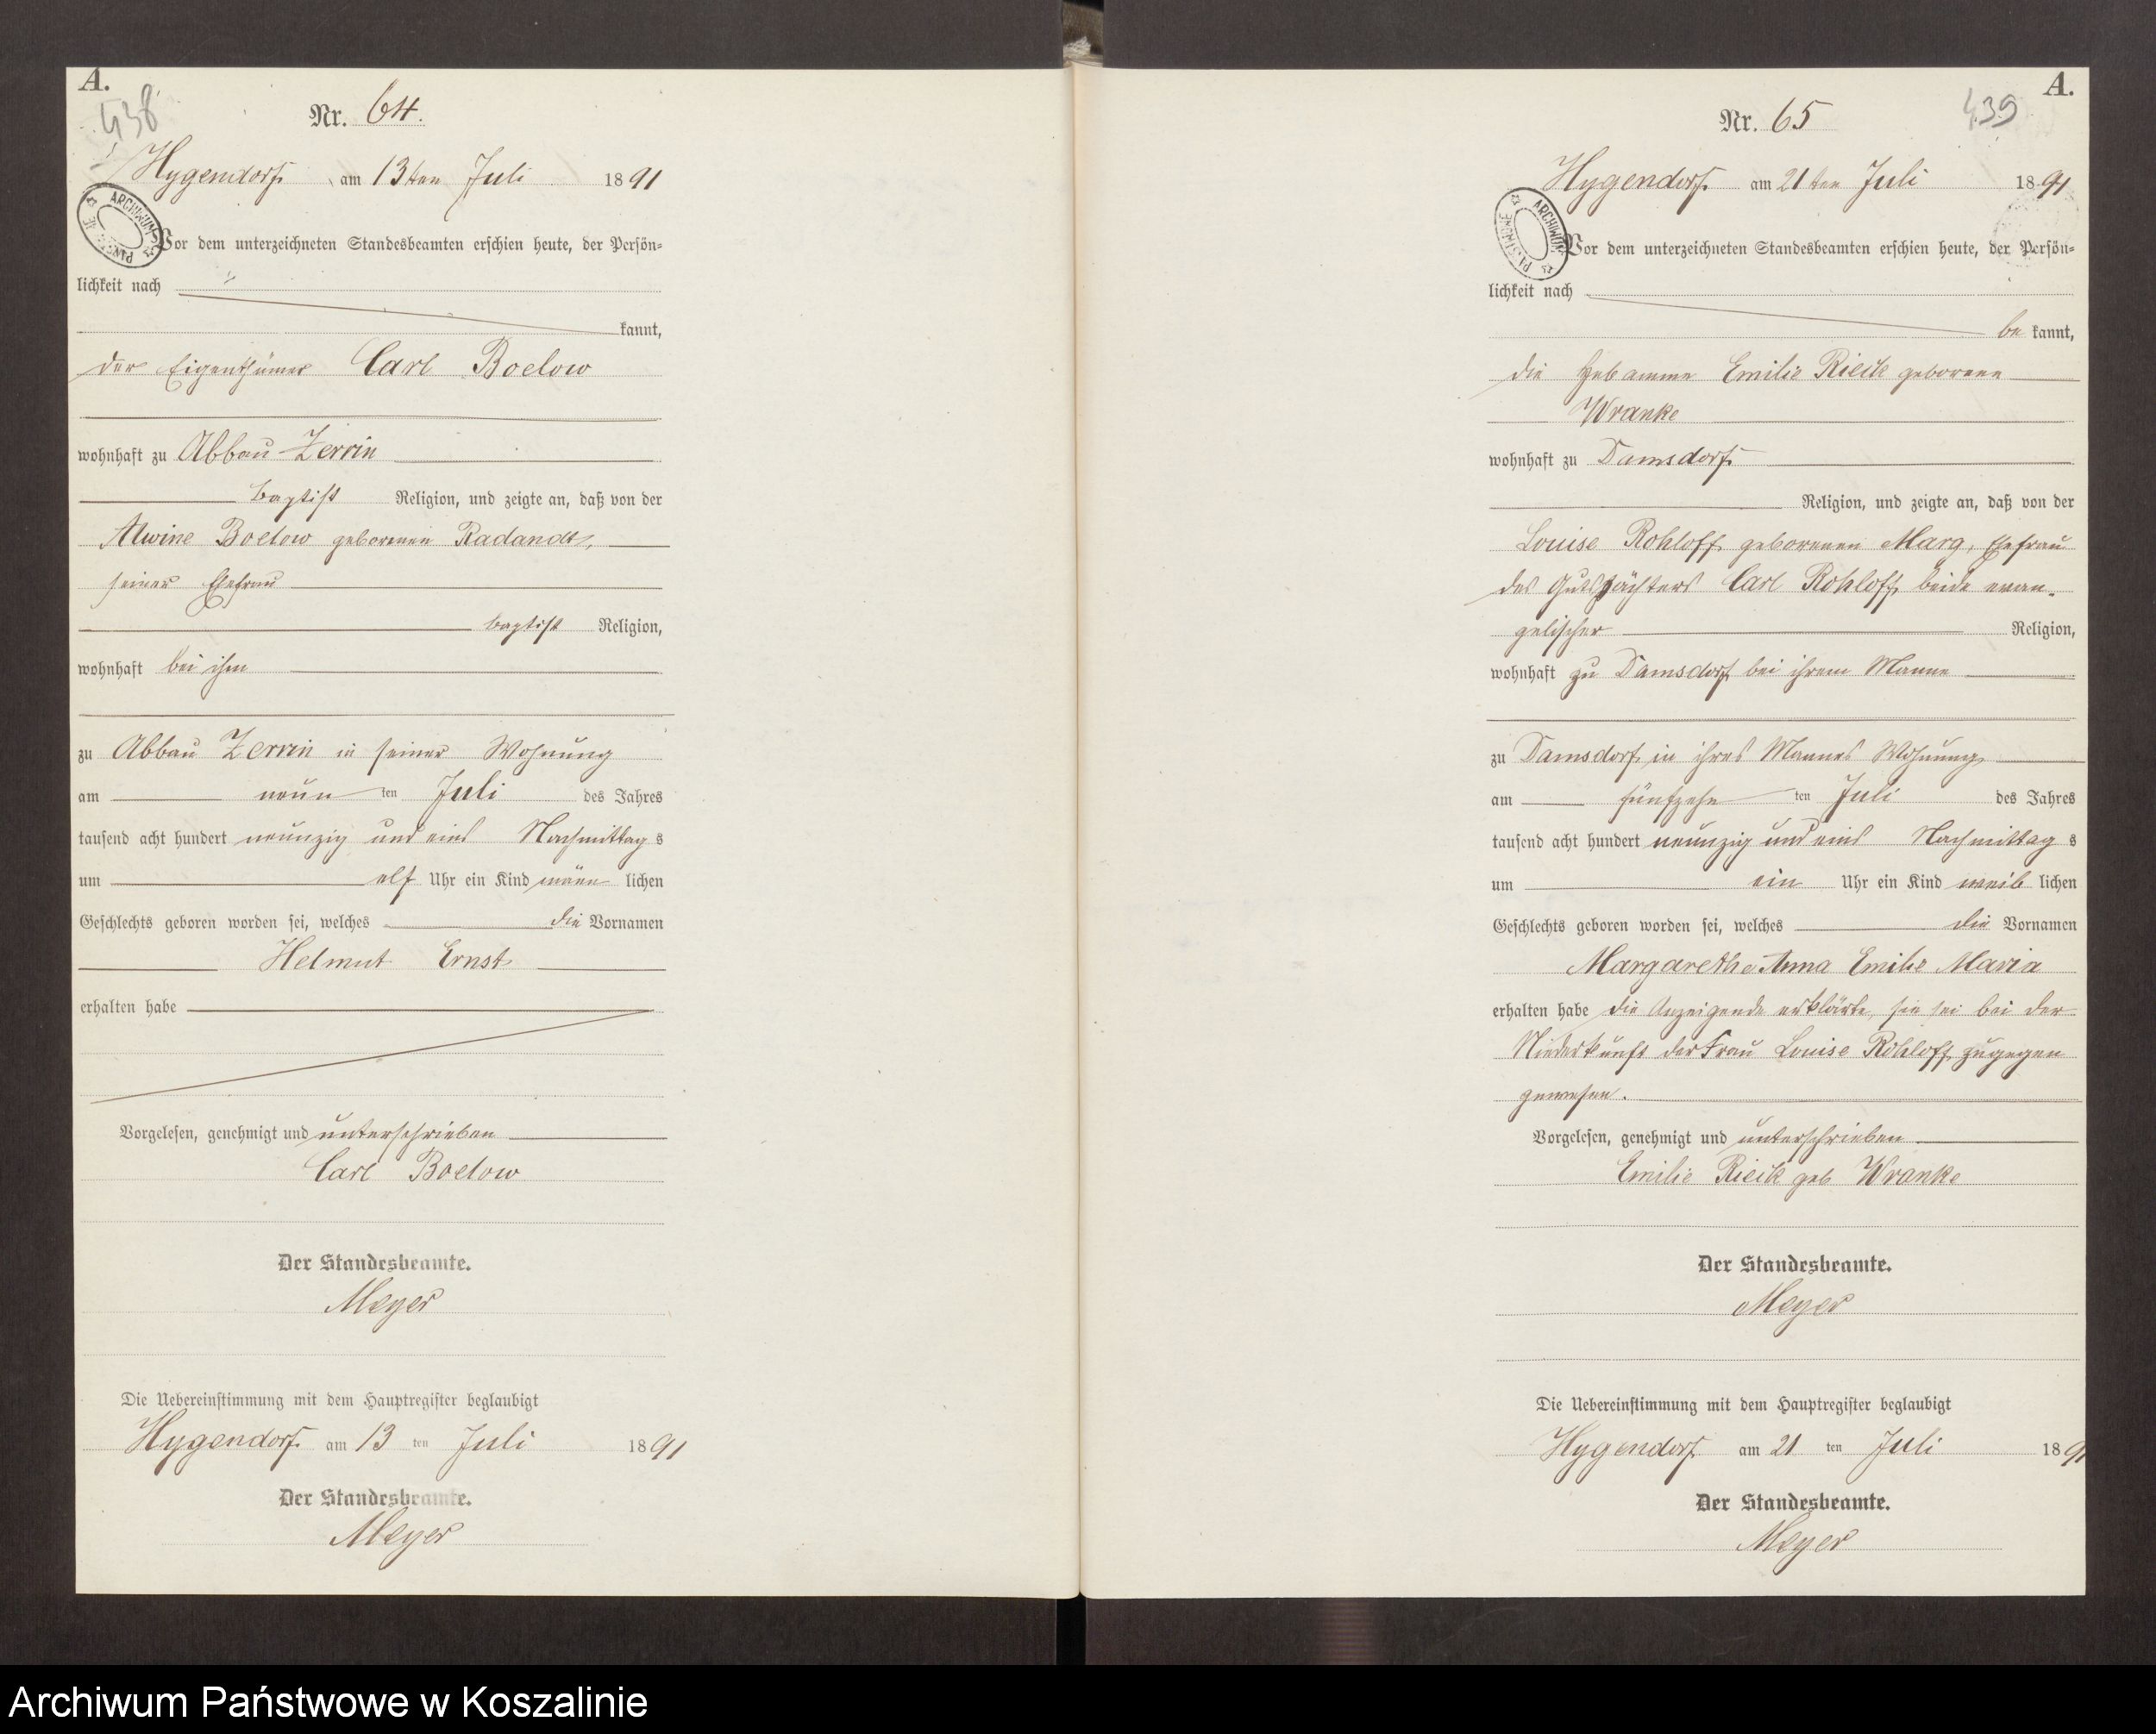 A.
438
Nr. 64.
Hygendorf am 13ten Juli 1891
Vor dem unterzeichneten Standesbeamten erschien heute, der Persön-
lichkeit nach
kannt,
der Eigenthümer Carl Boelow
wohnhaft zu Abbau Zerrin
baptist Religion, und zeigte an, daß von der
Alwine Boelow geborenen Radandt,
seiner Ehefrau
baptist Religion,
wohnhaft bei ihm
zu Abbau Zerrin in seiner Wohnung
am neun ten Juli des Jahres
tausend acht hundert neunzig und eins Nachmittag s
um elf Uhr ein Kind männ lichen
Geschlechts geboren worden sei, welches die Vornamen
Helmut Ernst
erhalten habe
Vorgelesen, genehmigt und unterschrieben
Carl Boelow
Der Standesbeamte.
Meyer
Die Uebereinstimmung mit dem Hauptregister beglaubigt
Hygendorf am 13 ten Juli 1891
Der Standesbeamte.
Meyer
A.
439
Nr. 65
Hygendorf am 21ten Juli 1891
Vor dem unterzeichneten Standesbeamten erschien heute, der Persön-
lichkeit nach
be kannt,
die Hebamme Emilie Rieck geborene
Wranke
wohnhaft zu Damsdorf
Religion, und zeigte an, daß von der
Louise Rohloff geborenen Marg, Ehefrau
des Gutspächters Carl Rohloff, beide evan-
gelischer Religion,
wohnhaft zu Damsdorf bei ihrem Manne
zu Damsdorf in ihres Mannes Wohnung
am fünfzehn ten Juli des Jahres
tausend acht hundert neunzig und eins Nachmittag s
um ein Uhr ein Kind weib lichen
Geschlechts geboren worden sei, welches die Vornamen
Margarethe Anna Emilie Maria
erhalten habe die Anzeigende erklärte, sie sei bei der
Niederkunft der Frau Louise Rohloff zugegen
gewesen.
Vorgelesen, genehmigt und unterschrieben
Emilie Rieck geb Wranke
Der Standesbeamte.
Meyer
Die Uebereinstimmung mit dem Hauptregister beglaubigt
Hygendorf am 21 ten Juli 1891
Der Standesbeamte.
Meyer
Archiwum Państwowe w Koszalinie